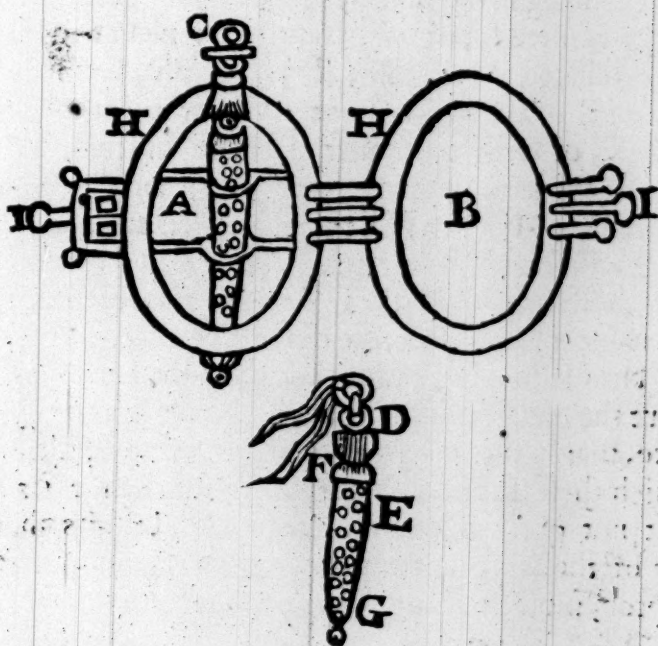 C
H H
I A B I
D
F
E
G